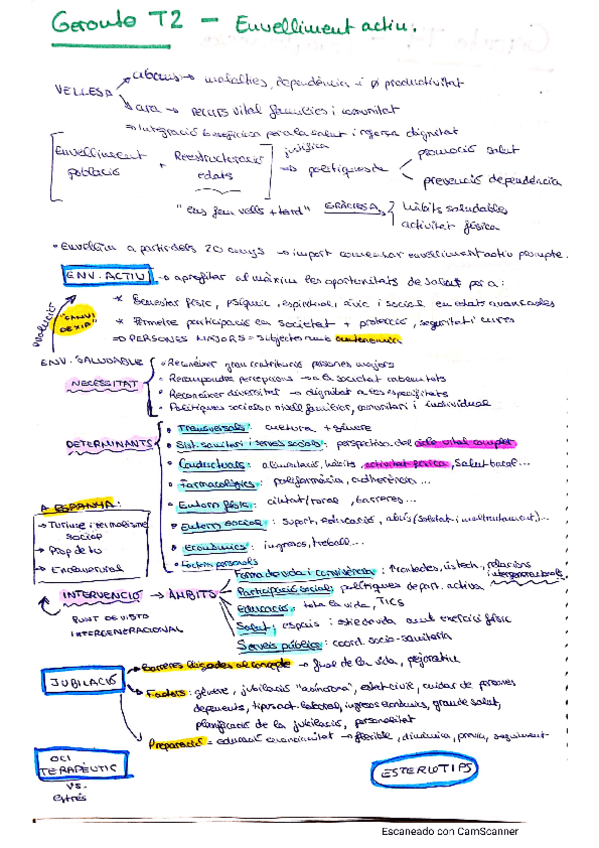 Geronto T2 – Envelliment actiu.
VELLESA
abans → malalties, dependència i Ø productivitat
ara → recurs vital famílies i comunitat
⇒ Integració beneficiosa per a la salut i
dignitat
Envelliment població + Reestructuració edats
justifica → polítiques de
promoció salut
prevenció dependència
"ens fem vells + tard" GRÀCIES A
hàbits saludables
activitat física
• Envellim a partir dels 20 anys → import començar envelliment actiu prompte.
ENV. ACTIU → aprofitar al màxim les oportunitats de salut per a:
* Benestar físic, psíquic, espiritual, cívic i social en edats avançades
* Permetre participació en societat + protecció, seguretat i cures
⇒ PERSONES MAJORS = subjectes amb autonomia
evolució
"CANVI D'EIX"
ENV. SALUDABLE
NECESSITAT
• Reconèixer gran contribució persones majors
• Recompondre percepcions → a la societat
• Reconèixer diversitat → dignitat a les especificitats
• Polítiques socials a nivell familiar, comunitari i individual
DETERMINANTS
• Transversals: cultura + gènere
• Sist. sanitari i serveis socials: perspectiva del cicle vital complet
• Conductuals: alimentació, hàbits, activitat física, salut bucal...
• Farmacològics: polifarmàcia, adherència...
• Entorn físic: ciutat/rural, barreres...
• Entorn social: suport, educació, abús (soledat i maltractament),...
• Econòmics: ingressos, treball...
• Factors personals
A ESPANYA:
→ Turisme i termalisme social
→ Prop de tu
→ Envelliment
INTERVENCIÓ → ÀMBITS
PUNT DE VISTA INTERGENERACIONAL
Forma de vida i convivència: llistech, relacions intergeneracionals
Participació social: polítiques depart. activa
Educació: tota la vida, TICs
Salut: espais i estil de vida amb exercici físic
Serveis públics: coord. socio-sanitària
JUBILACIÓ
Barreres lligades al concepte → final de la vida, pejoratiu
Factors: gènere, jubilació "asíncrona", estat civil, cuidar de persones
depenents, tipus act. laboral, ingressos econòmics, grau de salut,
planificació de la jubilació, personalitat
Preparació = educació en continuïtat → flexible, dinàmica, prèvia, seguiment
OCI TERAPÈUTIC
vs.
estrés
ESTERIOTIPS
Escaneado con CamScanner